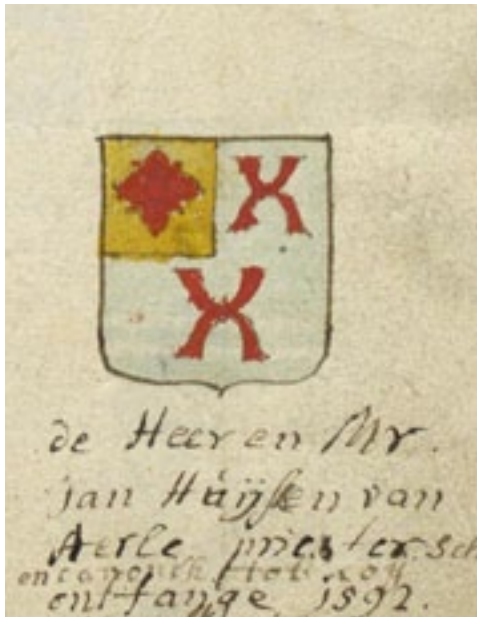 de Heer en Mr.
Jan Hüijssen van
Aerle priester sch
en canonik tot roij
ontfange 1592.